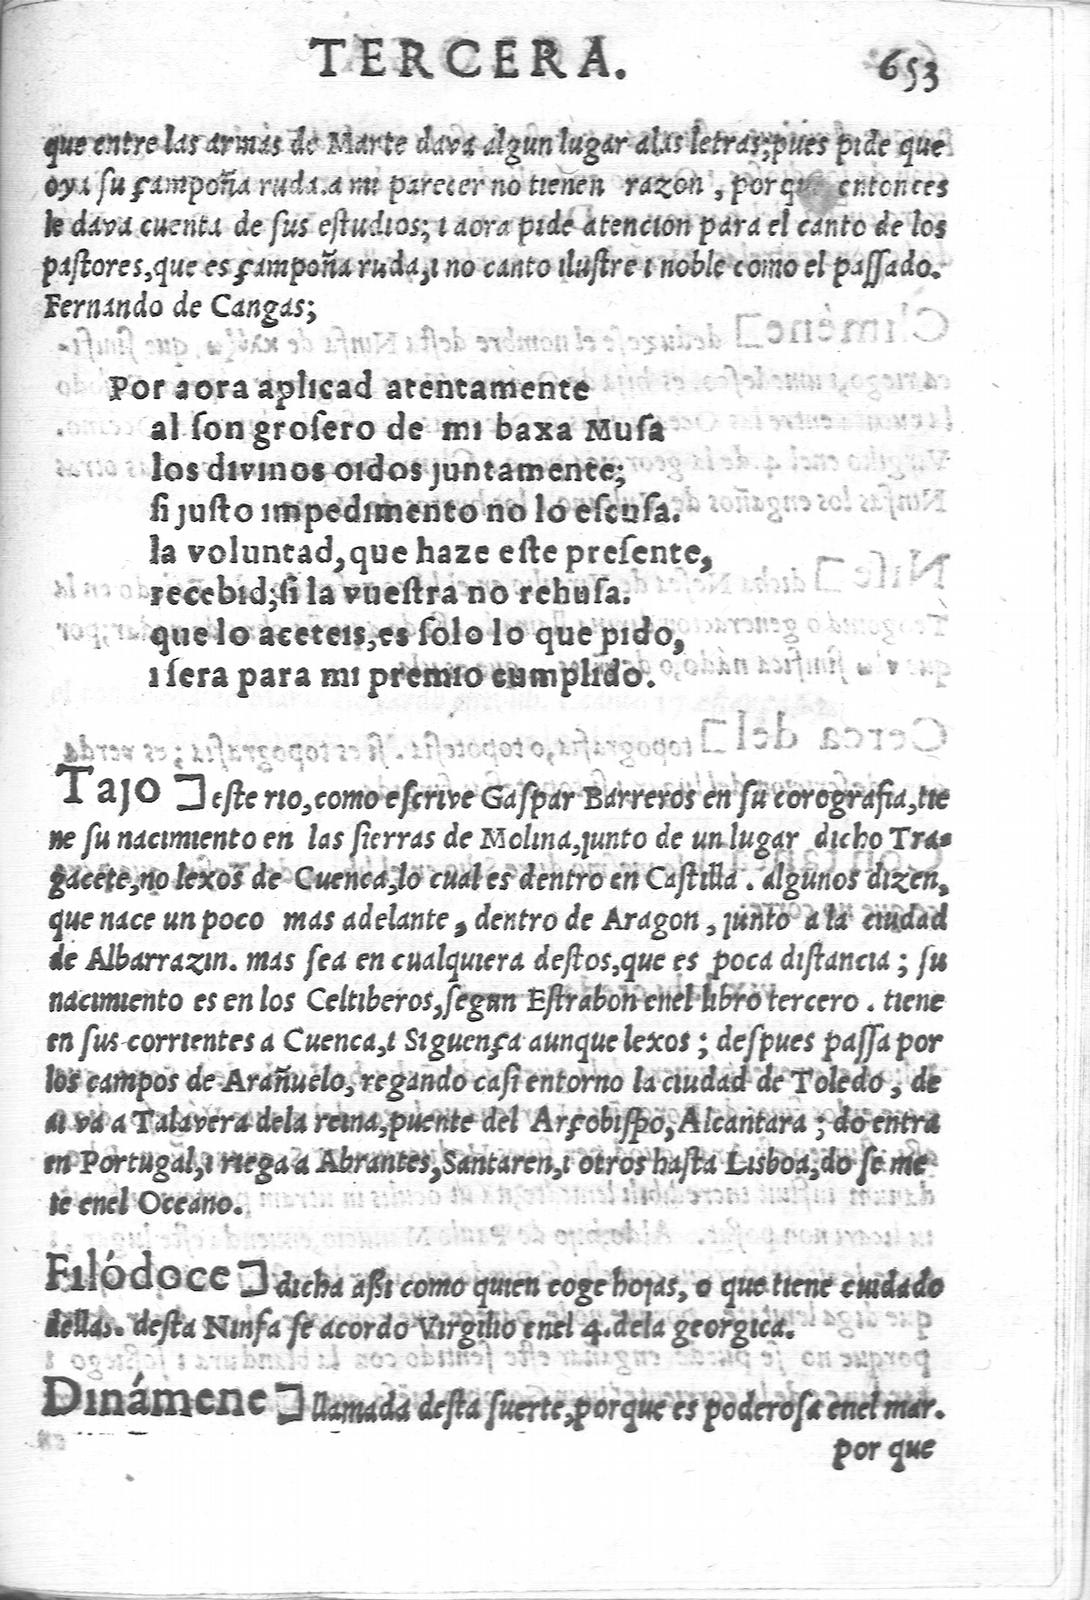 TERCERA. 653
que entre las armas de Marte dava algun lugar alas letras; pues pide que
oya su çampoña ruda. a mi parecer no tienen razon, porque entonces
le dava cuenta de sus estudios; i aora pide atencion para el canto de los
pastores, que es çampoña ruda, i no canto ilustre i noble como el passado.
Fernando de Cangas;
Por aora aplicad atentamente
al son grosero de mi baxa Musa
los divinos oidos juntamente;
si justo impedimento no lo escusa.
la voluntad, que haze este presente,
recebid; si la vuestra no rehusa.
que lo aceteis, es solo lo que pido,
i sera para mi premio cumplido.
Tajo ] este rio, como escrive Gaspar Barreros en su corografia, tie
ne su nacimiento en las sierras de Molina, junto de un lugar dicho Tra-
gacete, no lexos de Cuenca, lo cual es dentro en Castilla. algunos dizen,
que nace un poco mas adelante, dentro de Aragon, junto a la ciudad
de Albarrazin. mas sea en cualquiera destos, que es poca distancia; su
nacimiento es en los Celtiberos, segun Estrabon enel libro tercero. tiene
en sus corrientes a Cuenca, i Siguença aunque lexos; despues passa por
los campos de Arañuelo, regando casi entorno la ciudad de Toledo, de
ai va a Talavera dela reina, puente del Arçobispo, Alcantara; do entra
en Portugal, i riega a Abrantes, Santaren, i otros hasta Lisboa, do se me
te enel Oceano.
Filódoce ] dicha assi como quien coge hojas, o que tiene cuidado
dellas. desta Ninfa se acordo Virgilio enel 4. dela georgica.
Dinámene ] llamada desta suerte, porque es poderosa enel mar.
por que